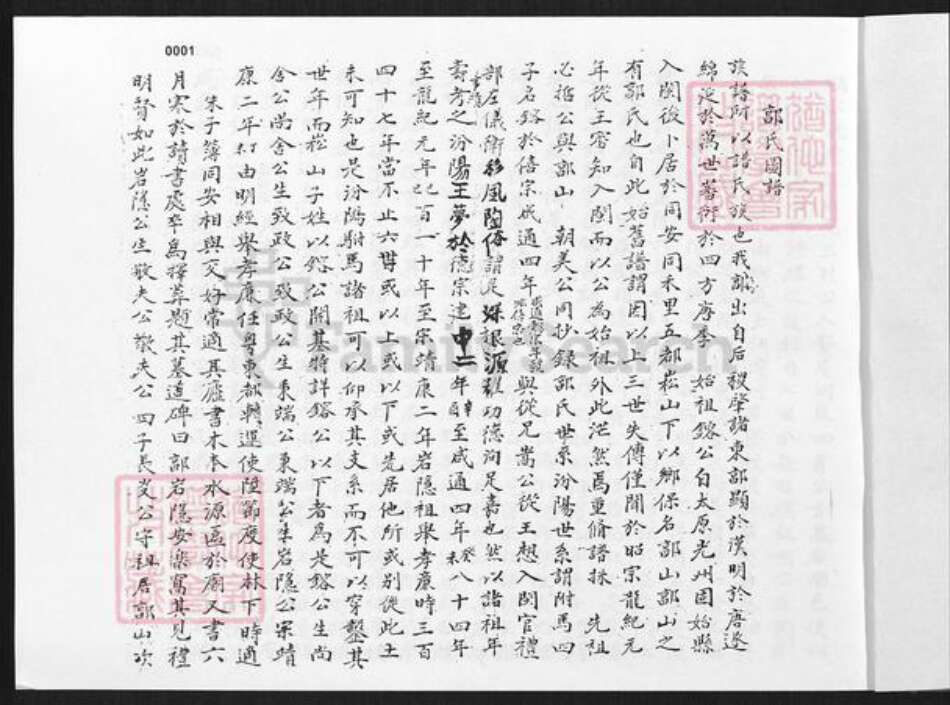 0001
郭氏圖譜
族譜所以譜氏族也我郭出自后稷肇諸東郭顯於漢明於唐遂
綿延於萬世蕃衍於四方唐季 始祖鎔公自太原光州固始縣
入閩後卜居於同安同禾里五都崧山下以鄉保名郭山郭山之
有郭氏也自此始舊譜謂因以上三世失傳僅聞於昭宗龍紀元
年從王審知入閩而以公為始祖外此茫然焉重脩譜牒 先祖
必振公與郭山 朝美公同抄錄郭氏世系汾陽世系謂駙馬四
子名鎔於僖宗咸通四年 與從兄嵩公從王想入閩官禮
部左儀衛移風陶俗謂是深報源 功德洵足嘉也然以諸祖年
壽考之汾陽王夢於德宗建中二年 至咸通四年癸未八十四年
至龍紀元年己百一十年至宋靖康二年岩隱祖舉孝廉時三百
四十七年當不止六世或以上或以下或先居他所或別從此土
未可知也是汾陽駙馬諸祖可以仰承其支系而不可以穿鑿其
世年而崧山子姓以鎔公開基特詳鎔公以下者為是鎔公生尚
舍公尚舍公生致政公致政公生東端公東端公生岩隱公宋靖
康二年 由明經舉孝廉任粵東都轉運使陞節度使林下時適
朱子簿同安相與交好常適其廬書木本水源匾於廟又書六
月寒於請書處卒為擇葬題其墓道碑曰郭岩隱安樂窩其見禮
明賢如此岩隱公生敬夫公敬夫公四子長炎公守祖居郭山次
FamilySearch